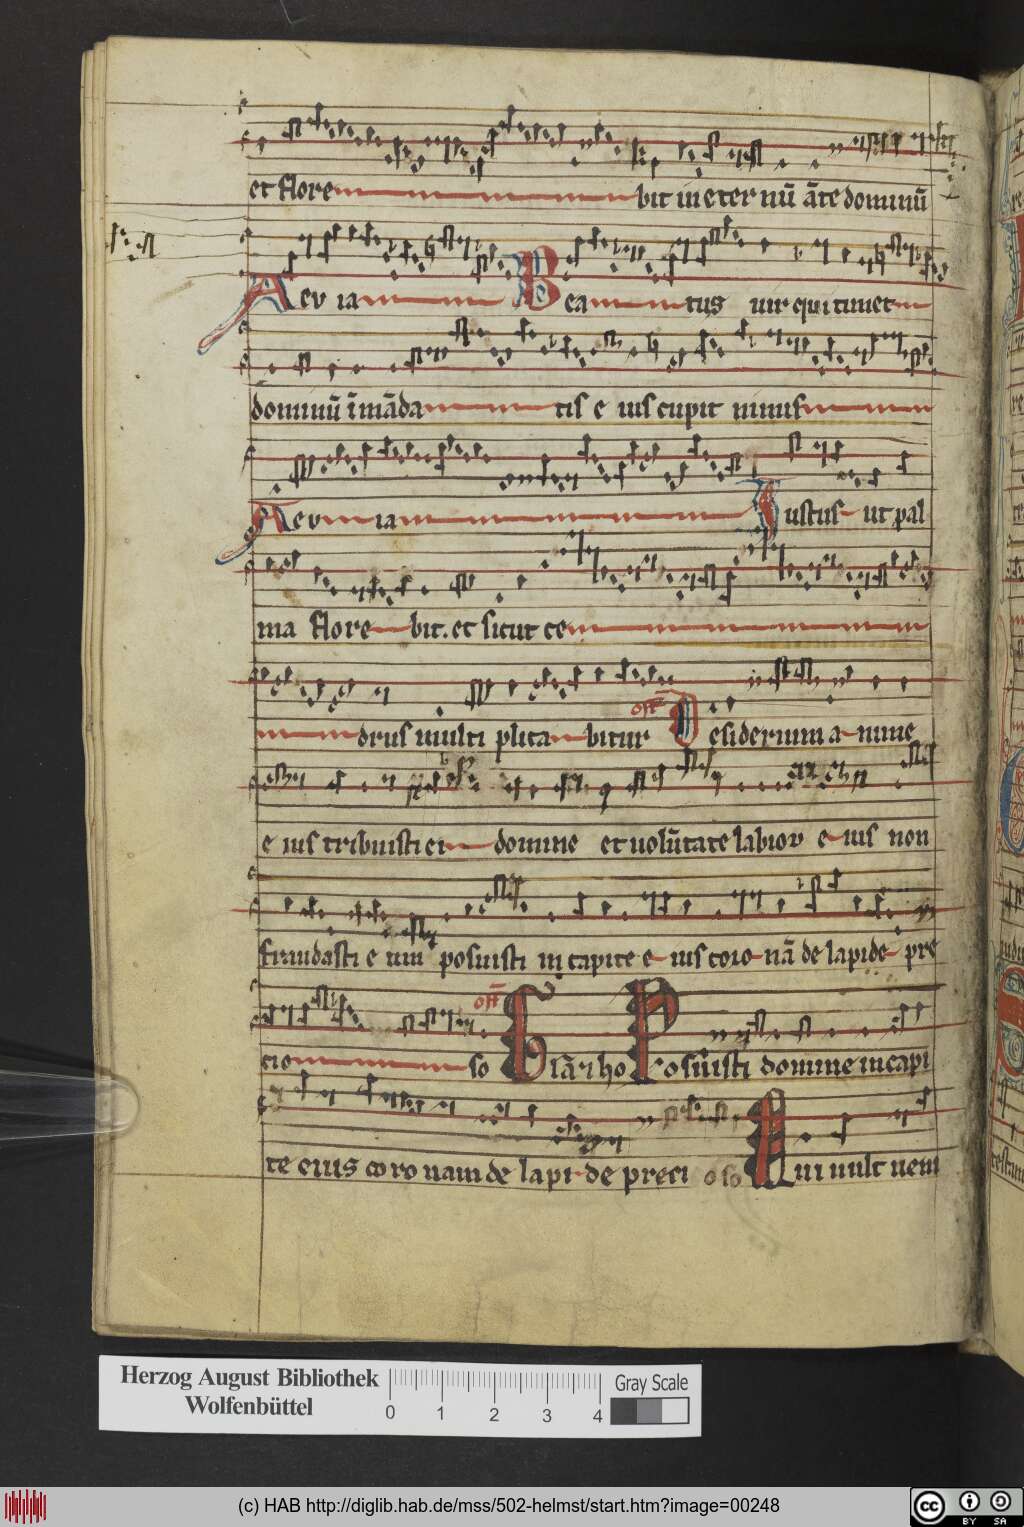 et flore bit in eter nū āte dominū
Aev ia Bea tus uir qui timet
dominū ī māda tis e ius cupit nimis
Aev ia Iustus ut pal
ma flore bit. et sicut ce
drus multi plica bitur off Desiderium a nime
e ius tribuisti ei domine et uolūtate labiorv e ius non
fraudasti e um posuisti in capite e ius coro nā de lapide pre
cio so off Glā ⁊ ho Posuisti domine in capi
te eius coro nam de lapi de preci oso Qui uult ueni
Herzog August Bibliothek
Wolfenbüttel
0 1 2 3 4
Gray Scale
(c) HAB http://diglib.hab.de/mss/502-helmst/start.htm?image=00248
cc BY SA